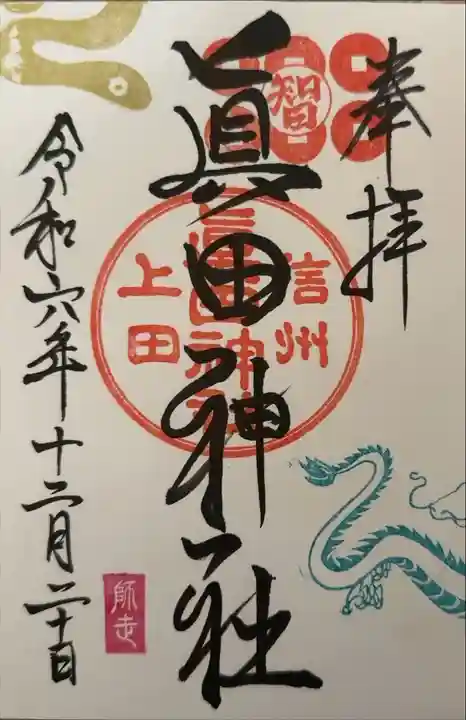 奉拝
智
眞田神社
信州
眞田神社
上田
令和六年十二月二十日
師走